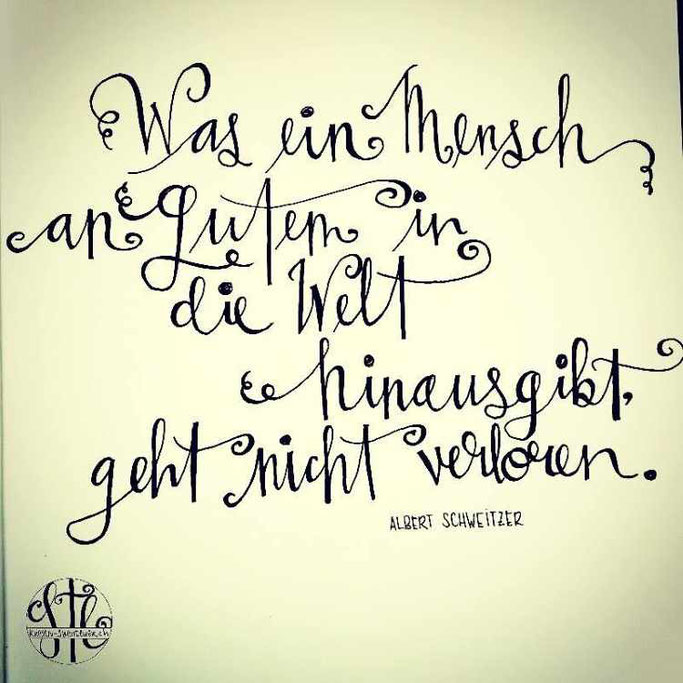 Was ein Mensch
an Gutem in
die Welt
hinausgibt,
geht nicht verloren.
ALBERT SCHWEITZER